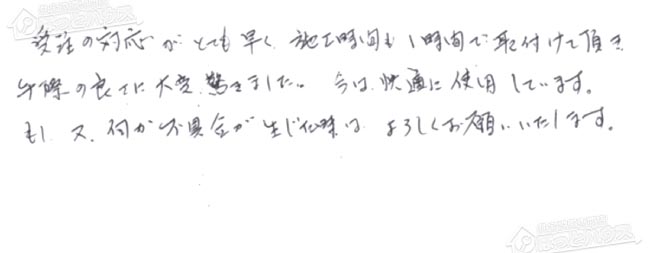 受注の対応がとても早く、施工時間も1時間で取付けて頂き
手際の良さに大変驚きました。今は快適に使用しています。
もし又、何か不具合が生じた時は、よろしくお願いいたします。